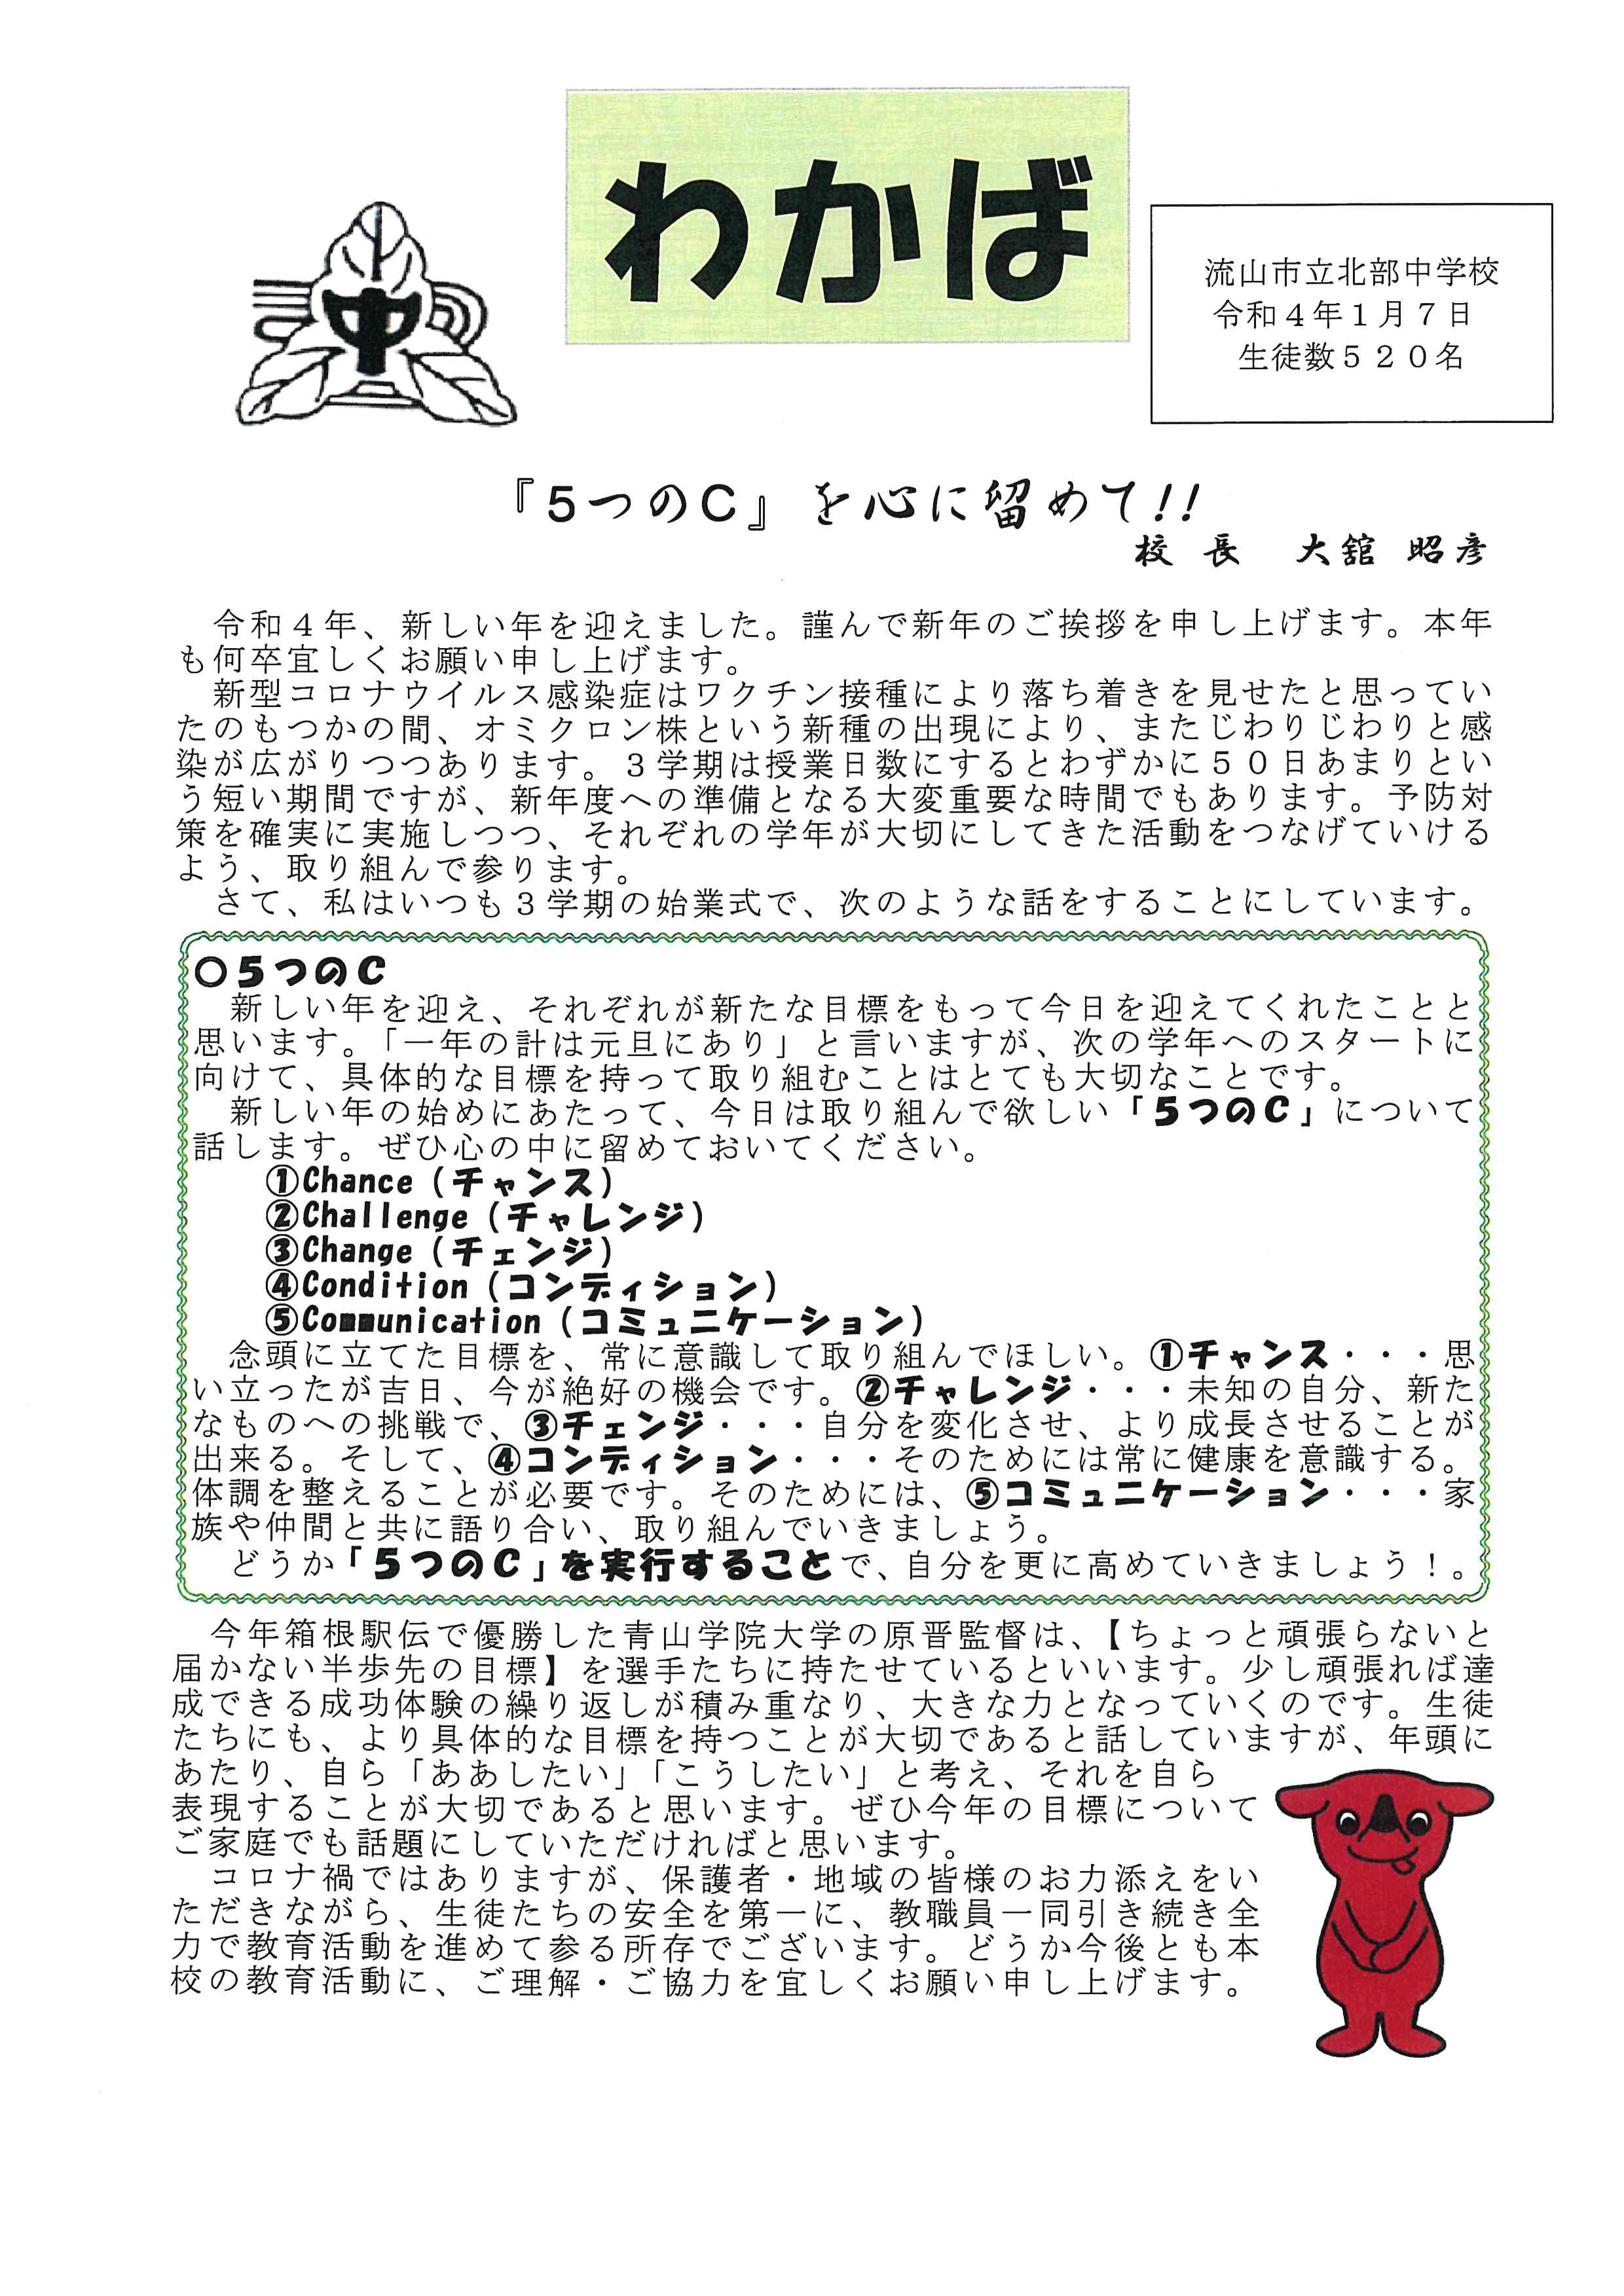 わかば
中
流山市立北部中学校
令和４年１月７日
生徒数５２０名
『５つのＣ』を心に留めて！！
校長　大舘 昭彦
令和４年、新しい年を迎えました。謹んで新年のご挨拶を申し上げます。本年
も何卒宜しくお願い申し上げます。
新型コロナウイルス感染症はワクチン接種により落ち着きを見せたと思ってい
たのもつかの間、オミクロン株という新種の出現により、またじわりじわりと感
染が広がりつつあります。３学期は授業日数にするとわずかに５０日あまりとい
う短い期間ですが、新年度への準備となる大変重要な時間でもあります。予防対
策を確実に実施しつつ、それぞれの学年が大切にしてきた活動をつなげていける
よう、取り組んで参ります。
さて、私はいつも３学期の始業式で、次のような話をすることにしています。
〇５つのＣ
新しい年を迎え、それぞれが新たな目標をもって今日を迎えてくれたことと
思います。「一年の計は元旦にあり」と言いますが、次の学年へのスタートに
向けて、具体的な目標を持って取り組むことはとても大切なことです。
新しい年の始めにあたって、今日は取り組んで欲しい「５つのＣ」について
話します。ぜひ心の中に留めておいてください。
①Chance（チャンス）
②Challenge（チャレンジ）
③Change（チェンジ）
④Condition（コンディション）
⑤Communication（コミュニケーション）
念頭に立てた目標を、常に意識して取り組んでほしい。①チャンス・・・思
い立ったが吉日、今が絶好の機会です。②チャレンジ・・・未知の自分、新た
なものへの挑戦で、③チェンジ・・・自分を変化させ、より成長させることが
出来る。そして、④コンディション・・・そのためには常に健康を意識する。
体調を整えることが必要です。そのためには、⑤コミュニケーション・・・家
族や仲間と共に語り合い、取り組んでいきましょう。
どうか「５つのＣ」を実行することで、自分を更に高めていきましょう！。
今年箱根駅伝で優勝した青山学院大学の原晋監督は、【ちょっと頑張らないと
届かない半歩先の目標】を選手たちに持たせているといいます。少し頑張れば達
成できる成功体験の繰り返しが積み重なり、大きな力となっていくのです。生徒
たちにも、より具体的な目標を持つことが大切であると話していますが、年頭に
あたり、自ら「ああしたい」「こうしたい」と考え、それを自ら
表現することが大切であると思います。ぜひ今年の目標について
ご家庭でも話題にしていただければと思います。
コロナ禍ではありますが、保護者・地域の皆様のお力添えをい
ただきながら、生徒たちの安全を第一に、教職員一同引き続き全
力で教育活動を進めて参る所存でございます。どうか今後とも本
校の教育活動に、ご理解・ご協力を宜しくお願い申し上げます。